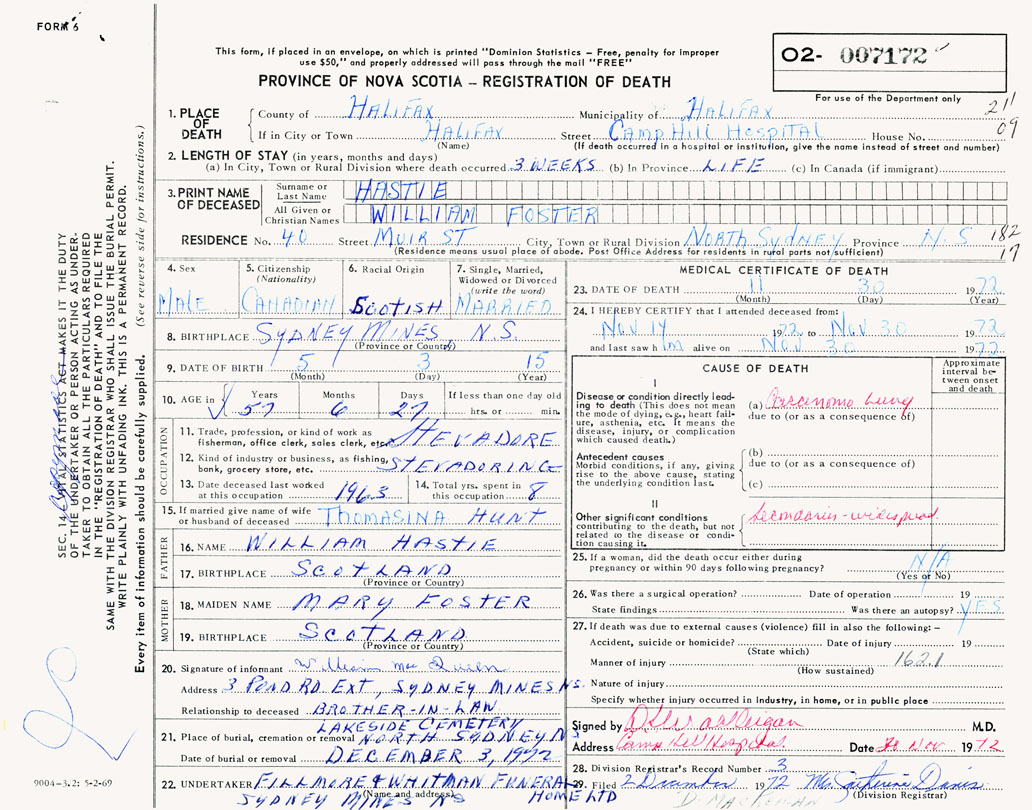 FORM 6
This form, if placed in an envelope, on which is printed "Dominion Statistics – Free, penalty for improper
use $50," and properly addressed will pass through the mail "FREE"
PROVINCE OF NOVA SCOTIA – REGISTRATION OF DEATH
02- 007172
For use of the Department only
211
09
1. PLACE OF DEATH
County of HALIFAX Municipality of HALIFAX
If in City or Town HALIFAX Street CAMP HILL HOSPITAL House No.
(Name) (If death occurred in a hospital or institution, give the name instead of street and number)
2. LENGTH OF STAY (in years, months and days)
(a) In City, Town or Rural Division where death occurred 3 WEEKS (b) In Province LIFE (c) In Canada (if immigrant)
3. PRINT NAME OF DECEASED
Surname or Last Name HASTIE
All Given or Christian Names WILLIAM FOSTER
RESIDENCE No. 40 Street MUIR ST City, Town or Rural Division NORTH SYDNEY Province N.S 182
(Residence means usual place of abode. Post Office Address for residents in rural parts not sufficient) 17
4. Sex
MALE
5. Citizenship
(Nationality)
CANADIAN
6. Racial Origin
SCOTISH
7. Single, Married,
Widowed or Divorced
(write the word)
MARRIED
8. BIRTHPLACE SYDNEY MINES, N.S.
(Province or Country)
9. DATE OF BIRTH 5 3 15
(Month) (Day) (Year)
10. AGE in
Years Months Days If less than one day old
57 6 27 hrs. or min.
OCCUPATION
11. Trade, profession, or kind of work as
fisherman, office clerk, sales clerk, etc. STEVADORE
12. Kind of industry or business, as fishing,
bank, grocery store, etc. STEVADORING
13. Date deceased last worked
at this occupation 1963
14. Total yrs. spent in
this occupation 8
15. If married give name of wife
or husband of deceased THOMASINA HUNT
FATHER
16. NAME WILLIAM HASTIE
17. BIRTHPLACE SCOTLAND
(Province or Country)
MOTHER
18. MAIDEN NAME MARY FOSTER
19. BIRTHPLACE SCOTLAND
(Province or Country)
20. Signature of informant William Mac Queen
Address 3 POND RD. EXT, SYDNEY MINES NS.
Relationship to deceased BROTHER-IN-LAW
LAKESIDE CEMETERY
21. Place of burial, cremation or removal NORTH SYDNEY NS
Date of burial or removal DECEMBER 3, 1972
22. UNDERTAKER FILLMORE & WHITMAN FUNERAL
(Name and address) HOME LTD
SYDNEY MINES NS
MEDICAL CERTIFICATE OF DEATH
23. DATE OF DEATH 11 30 1972
(Month) (Day) (Year)
24. I HEREBY CERTIFY that I attended deceased from:
Nov 14 1972 to Nov 30 1972
and last saw him alive on Nov 30 1972
CAUSE OF DEATH
Approximate
interval be-
tween onset
and death
I
Disease or condition directly lead-
ing to death (This does not mean
the mode of dying, e.g., heart fail-
ure, asthenia, etc. It means the
disease, injury, or complication
which caused death.)
(a) Carcinoma Lung
due to (or as a consequence of)
Antecedent causes
Morbid conditions, if any, giving
rise to the above cause, stating
the underlying condition last.
(b)
due to (or as a consequence of)
(c)
II
Other significant conditions
contributing to the death, but not
related to the disease or condi-
tion causing it.
Secondaries - widespread
25. If a woman, did the death occur either during
pregnancy or within 90 days following pregnancy? N/A
(Yes or No)
26. Was there a surgical operation? Date of operation 19
State findings Was there an autopsy? YES
27. If death was due to external causes (violence) fill in also the following: –
Accident, suicide or homicide? Date of injury 19
(State which)
Manner of injury 162.1
(How sustained)
Nature of injury
Specify whether injury occurred in industry, in home, or in public place
Signed by M.D.
Address Camp Hill Hospital Date 30 Nov 1972
28. Division Registrar's Record Number 3
29. Filed 2 December 1972
(Division Registrar)
SEC. 14. VITAL STATISTICS ACT MAKES IT THE DUTY
OF THE UNDERTAKER OR PERSON ACTING AS UNDER-
TAKER TO OBTAIN ALL THE PARTICULARS REQUIRED
IN THE "REGISTRATION OF DEATH" AND TO FILE THE
SAME WITH THE DIVISION REGISTRAR WHO SHALL ISSUE THE BURIAL PERMIT.
WRITE PLAINLY WITH UNFADING INK. THIS IS A PERMANENT RECORD.
Every item of information should be carefully supplied. (See reverse side for instructions.)
9004-3.2: 5-2-69